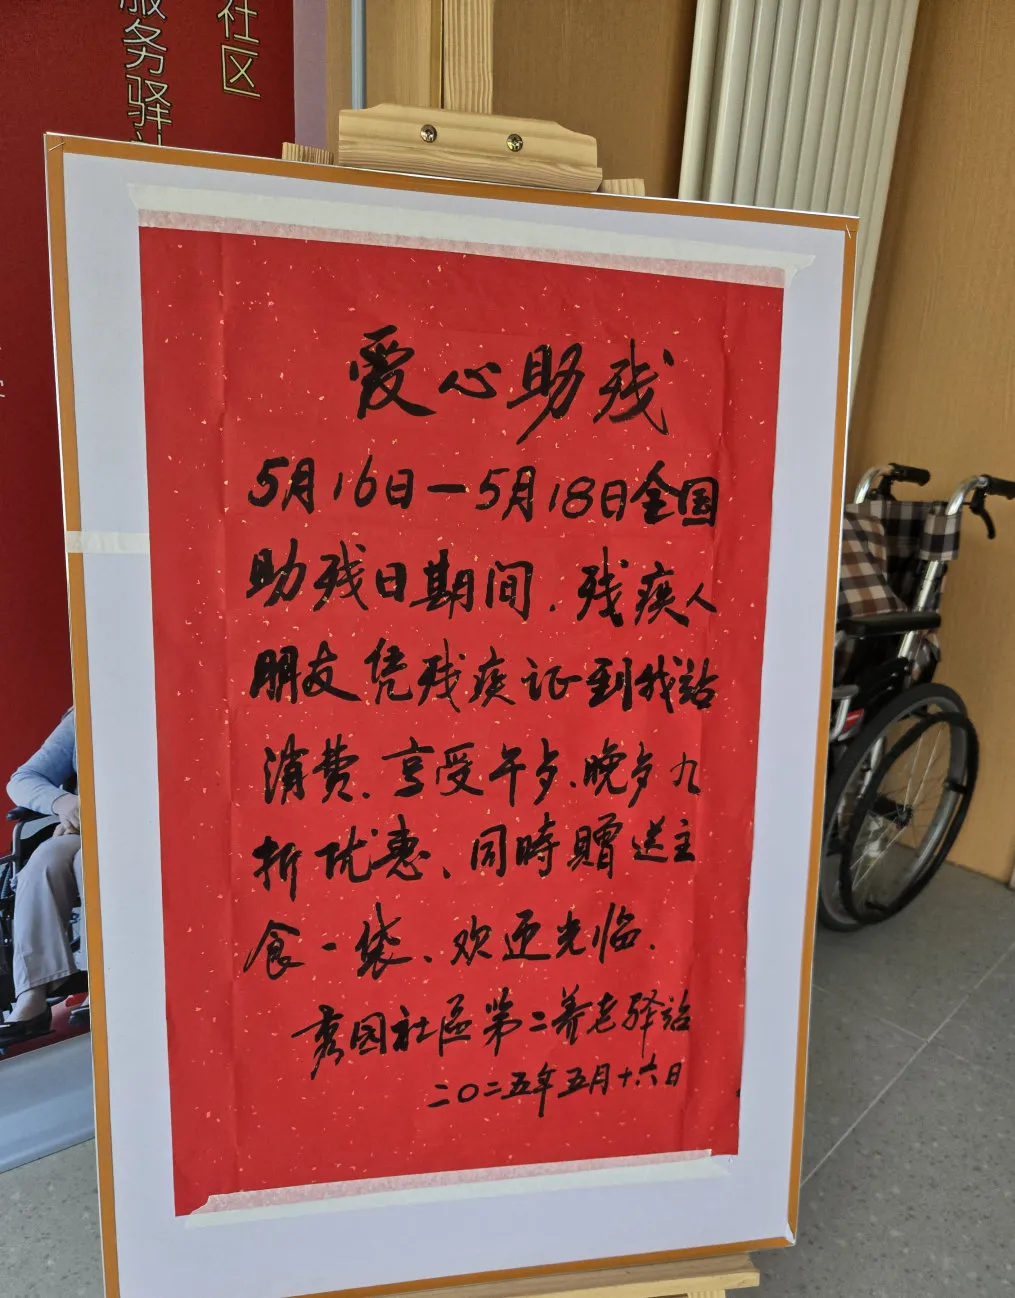 社区
服务驿
爱心助残
5月16日一5月18日全国
助残日期间.残疾人
朋友凭残疾证到我站
消费.享受午歺.晚歺九
折优惠、同時赠送主
食一袋、欢迎光临.
秀园社区第二养老驿站
二〇二五年五月十六日